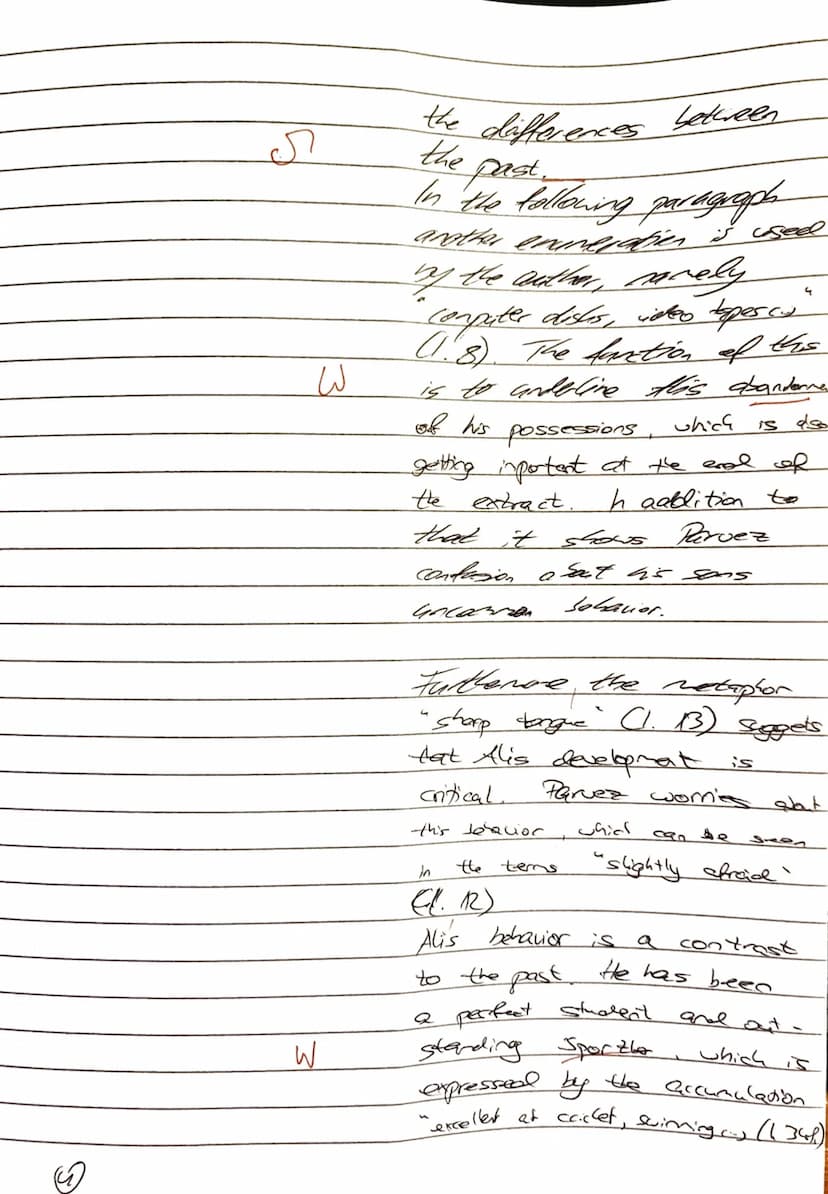 the differences between
the past.
In the following paragraph
another enumeration is used
by the author, namely
"computer disks, video tapes (...)"
(l. 8). The function of this
is to underline Alis abandonne
of his possessions, which is also
getting inportant at the end of
the extract. In addition to
that it shows Parvez
confusion about his sons
uncommon behavior.
Furthermore, the metaphor
"sharp tongue" (l. 13) suggets
that Alis development is
critical. Parvez worries about
this behavior, which can be seen
in the terms "slightly afraid"
(l. 12)
Alis behavior is a contrast
to the past. He has been
a perfect student and out-
standing , which is
expressed by the accumulation
"excellent at cricket, swimming (...)" (l. 34f.)
W
W
4